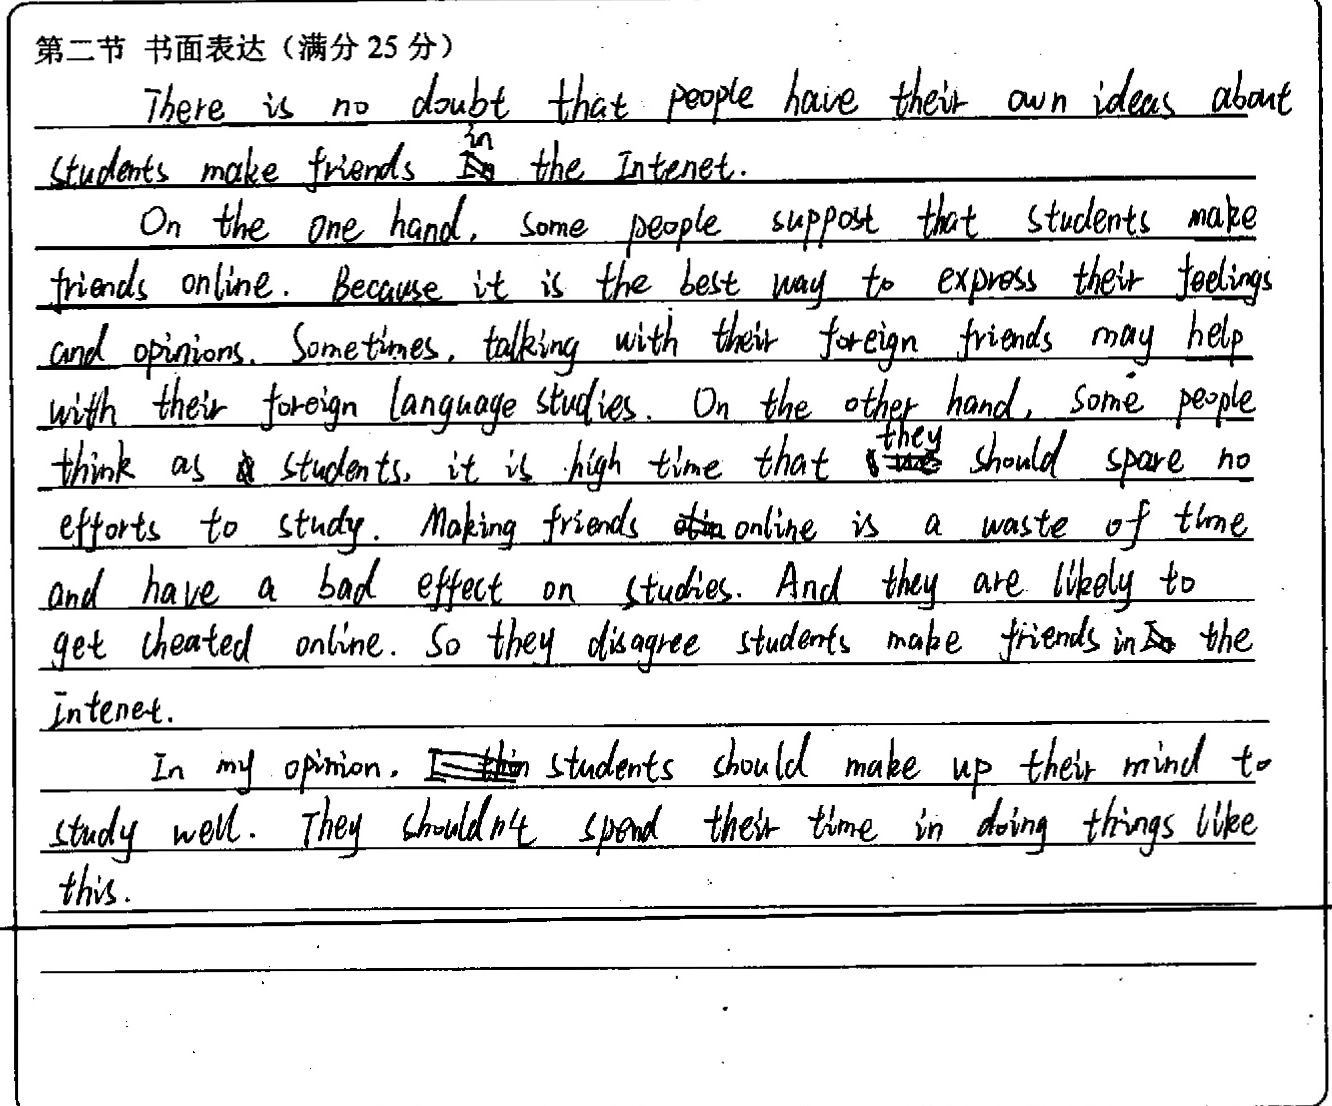 第二节 书面表达（满分 25 分）
There is no doubt that people have their own ideas about
students make friends in the Intenet.
On the one hand, some people suppost that students make
friends online. Because it is the best way to express their feelings
and opinions. Sometimes, talking with their foreign friends may help
with their foreign language studies. On the other hand, some people
think as students, it is high time that they should spare no
efforts to study. Making friends online is a waste of time
and have a bad effect on studies. And they are likely to
get cheated online. So they disagree students make friends in the
Intenet.
In my opinion, students should make up their mind to
study well. They shouldn't spend their time in doing things like
this.